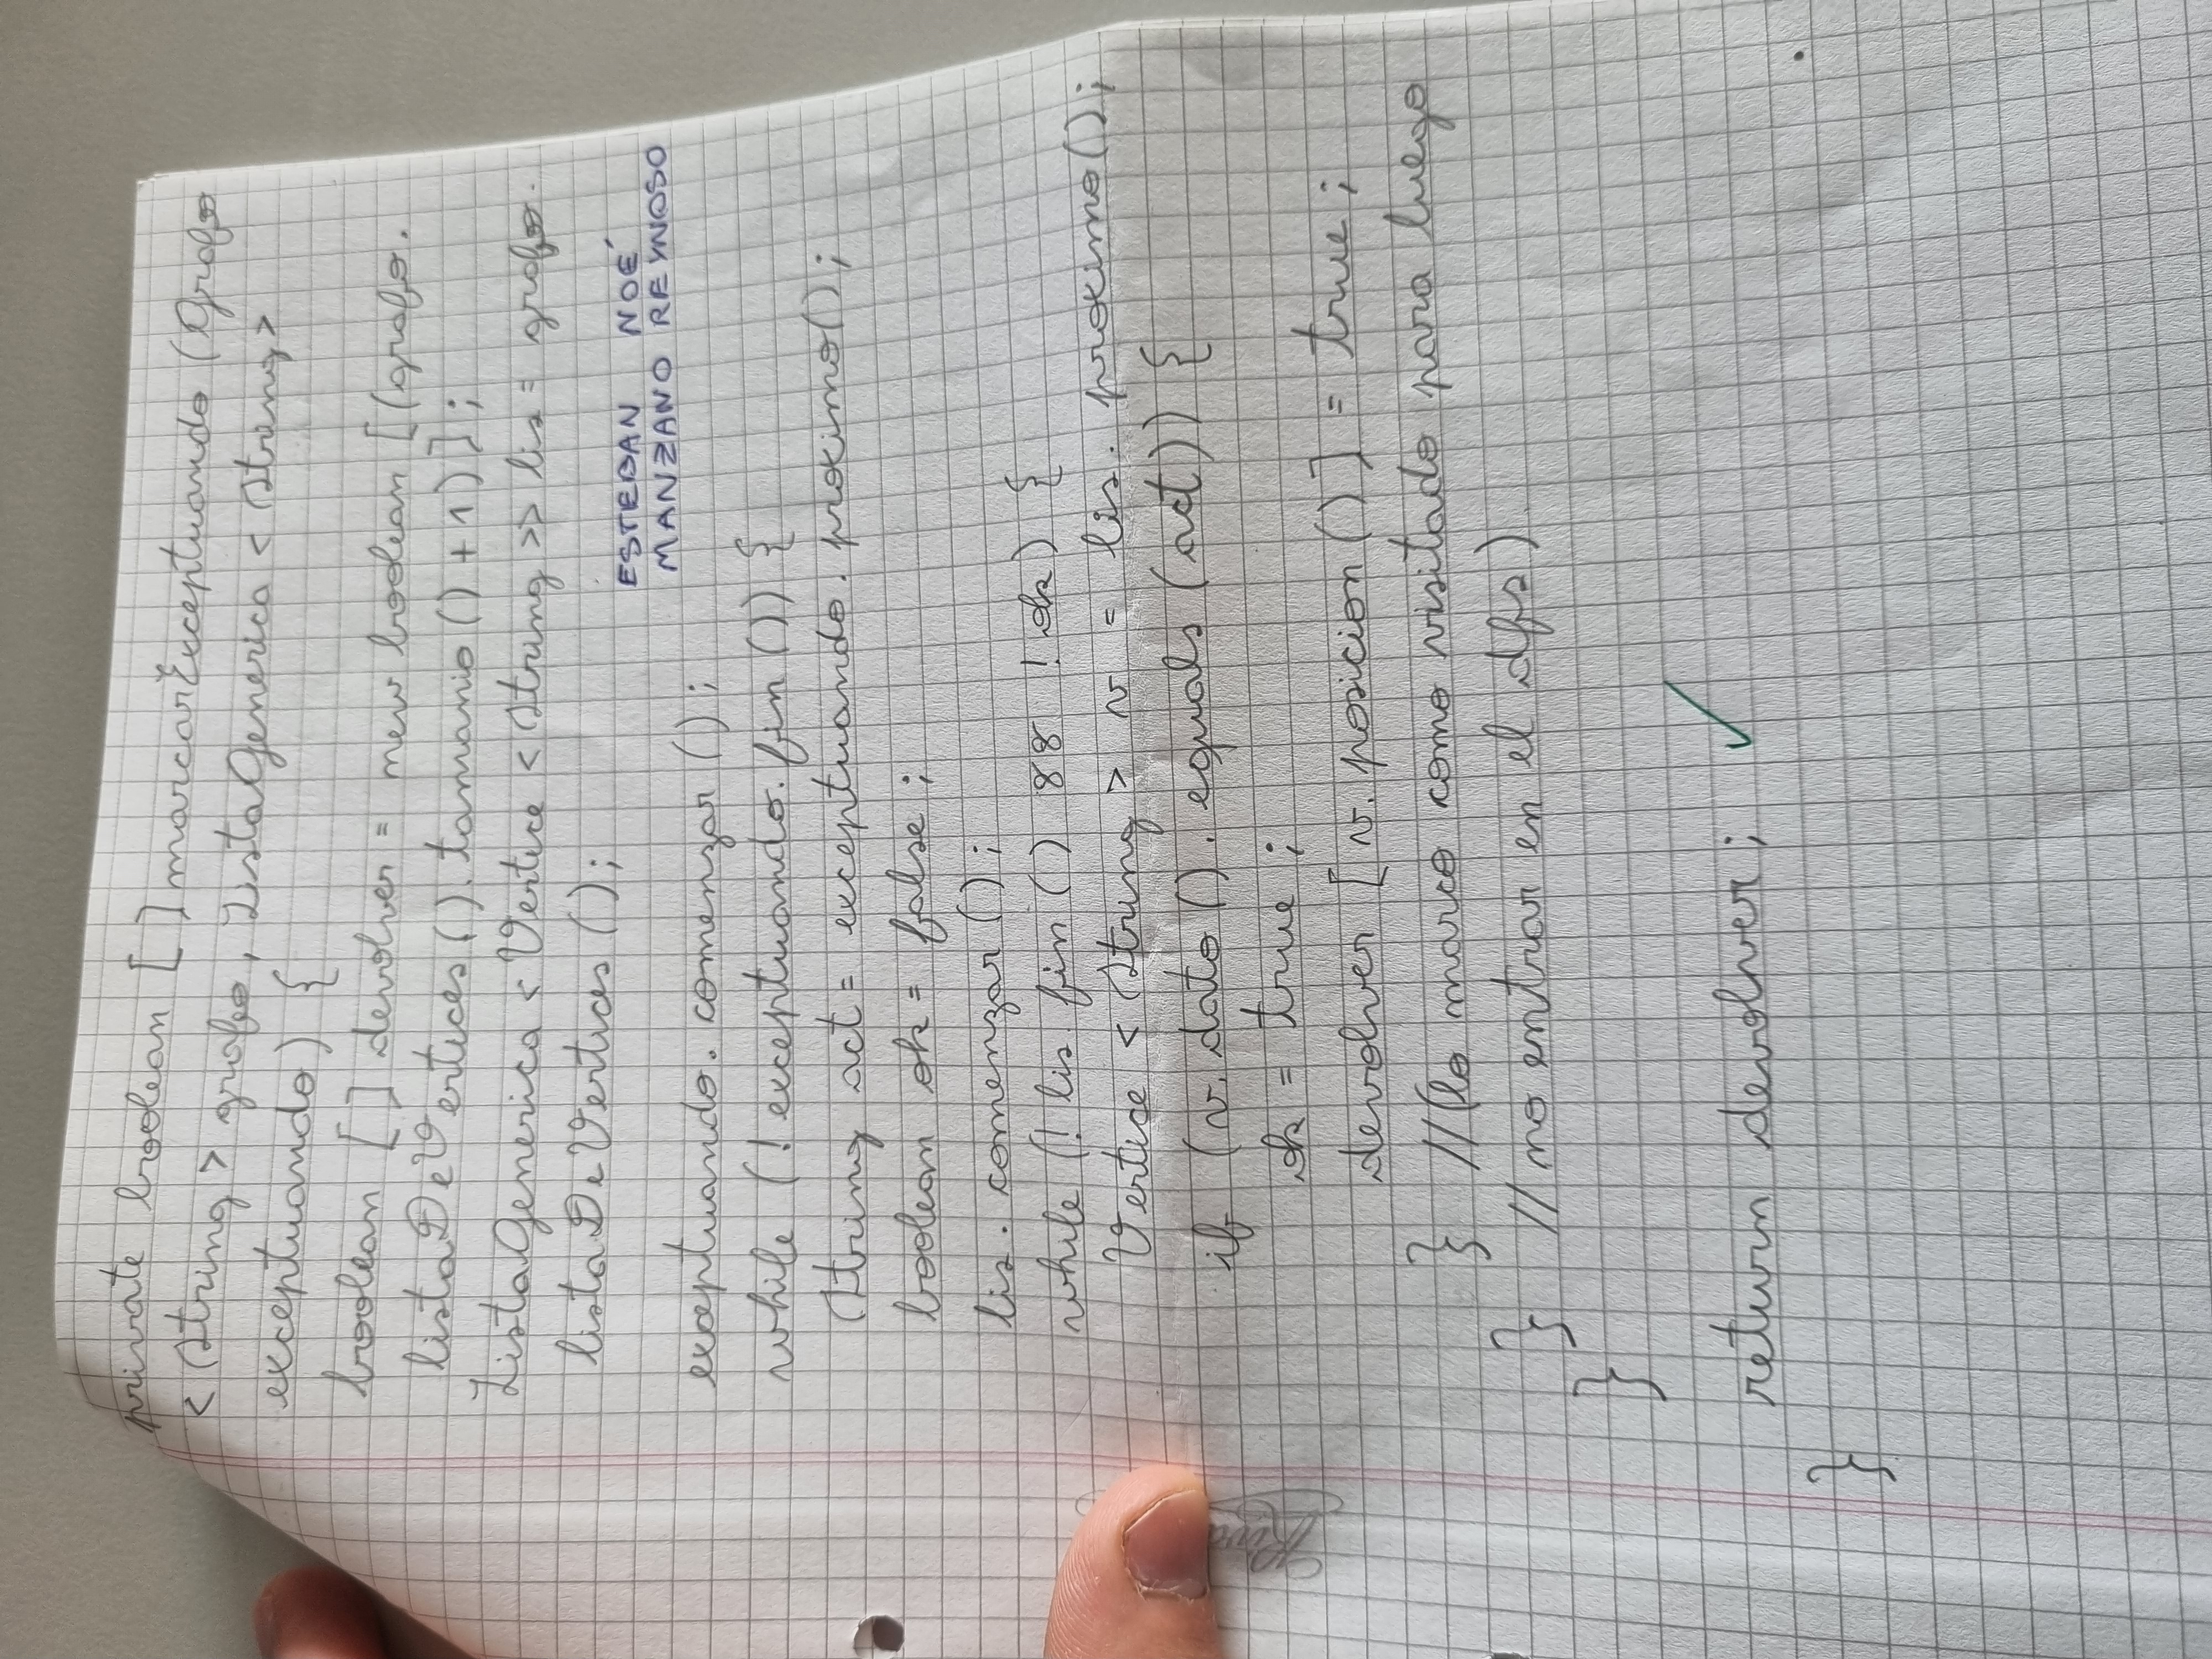 private boolean [ ] marcarExceptuando (Grafo
< String > grafo, ListaGenerica < String >
exceptuando) {
boolean [ ] devolver = new boolean [(grafo.
listaDeVertices ( ). tamanio ( ) + 1 ) ] ;
ListaGenerica < Vertice < String >> lis = grafo.
listaDeVertices ( );
ESTEBAN NOÉ
MANZANO REYNOSO
exceptuando. comenzar ( ) ;
while ( ! exceptuando. fin ( ) ) {
String act = exceptuando. proximo( ) ;
boolean ok = false ;
lis. comenzar ( ) ;
while ( ! lis. fin ( ) && ! ok ) {
Vertice < String > v = lis. proximo( ) ;
if ( v. dato ( ). equals (act) ) {
ok = true ;
devolver [ v. posicion ( ) ] = true ;
} // (lo marco como visitado para luego
} // no entrar en el dfs )
}
return devolver ; ✓
}